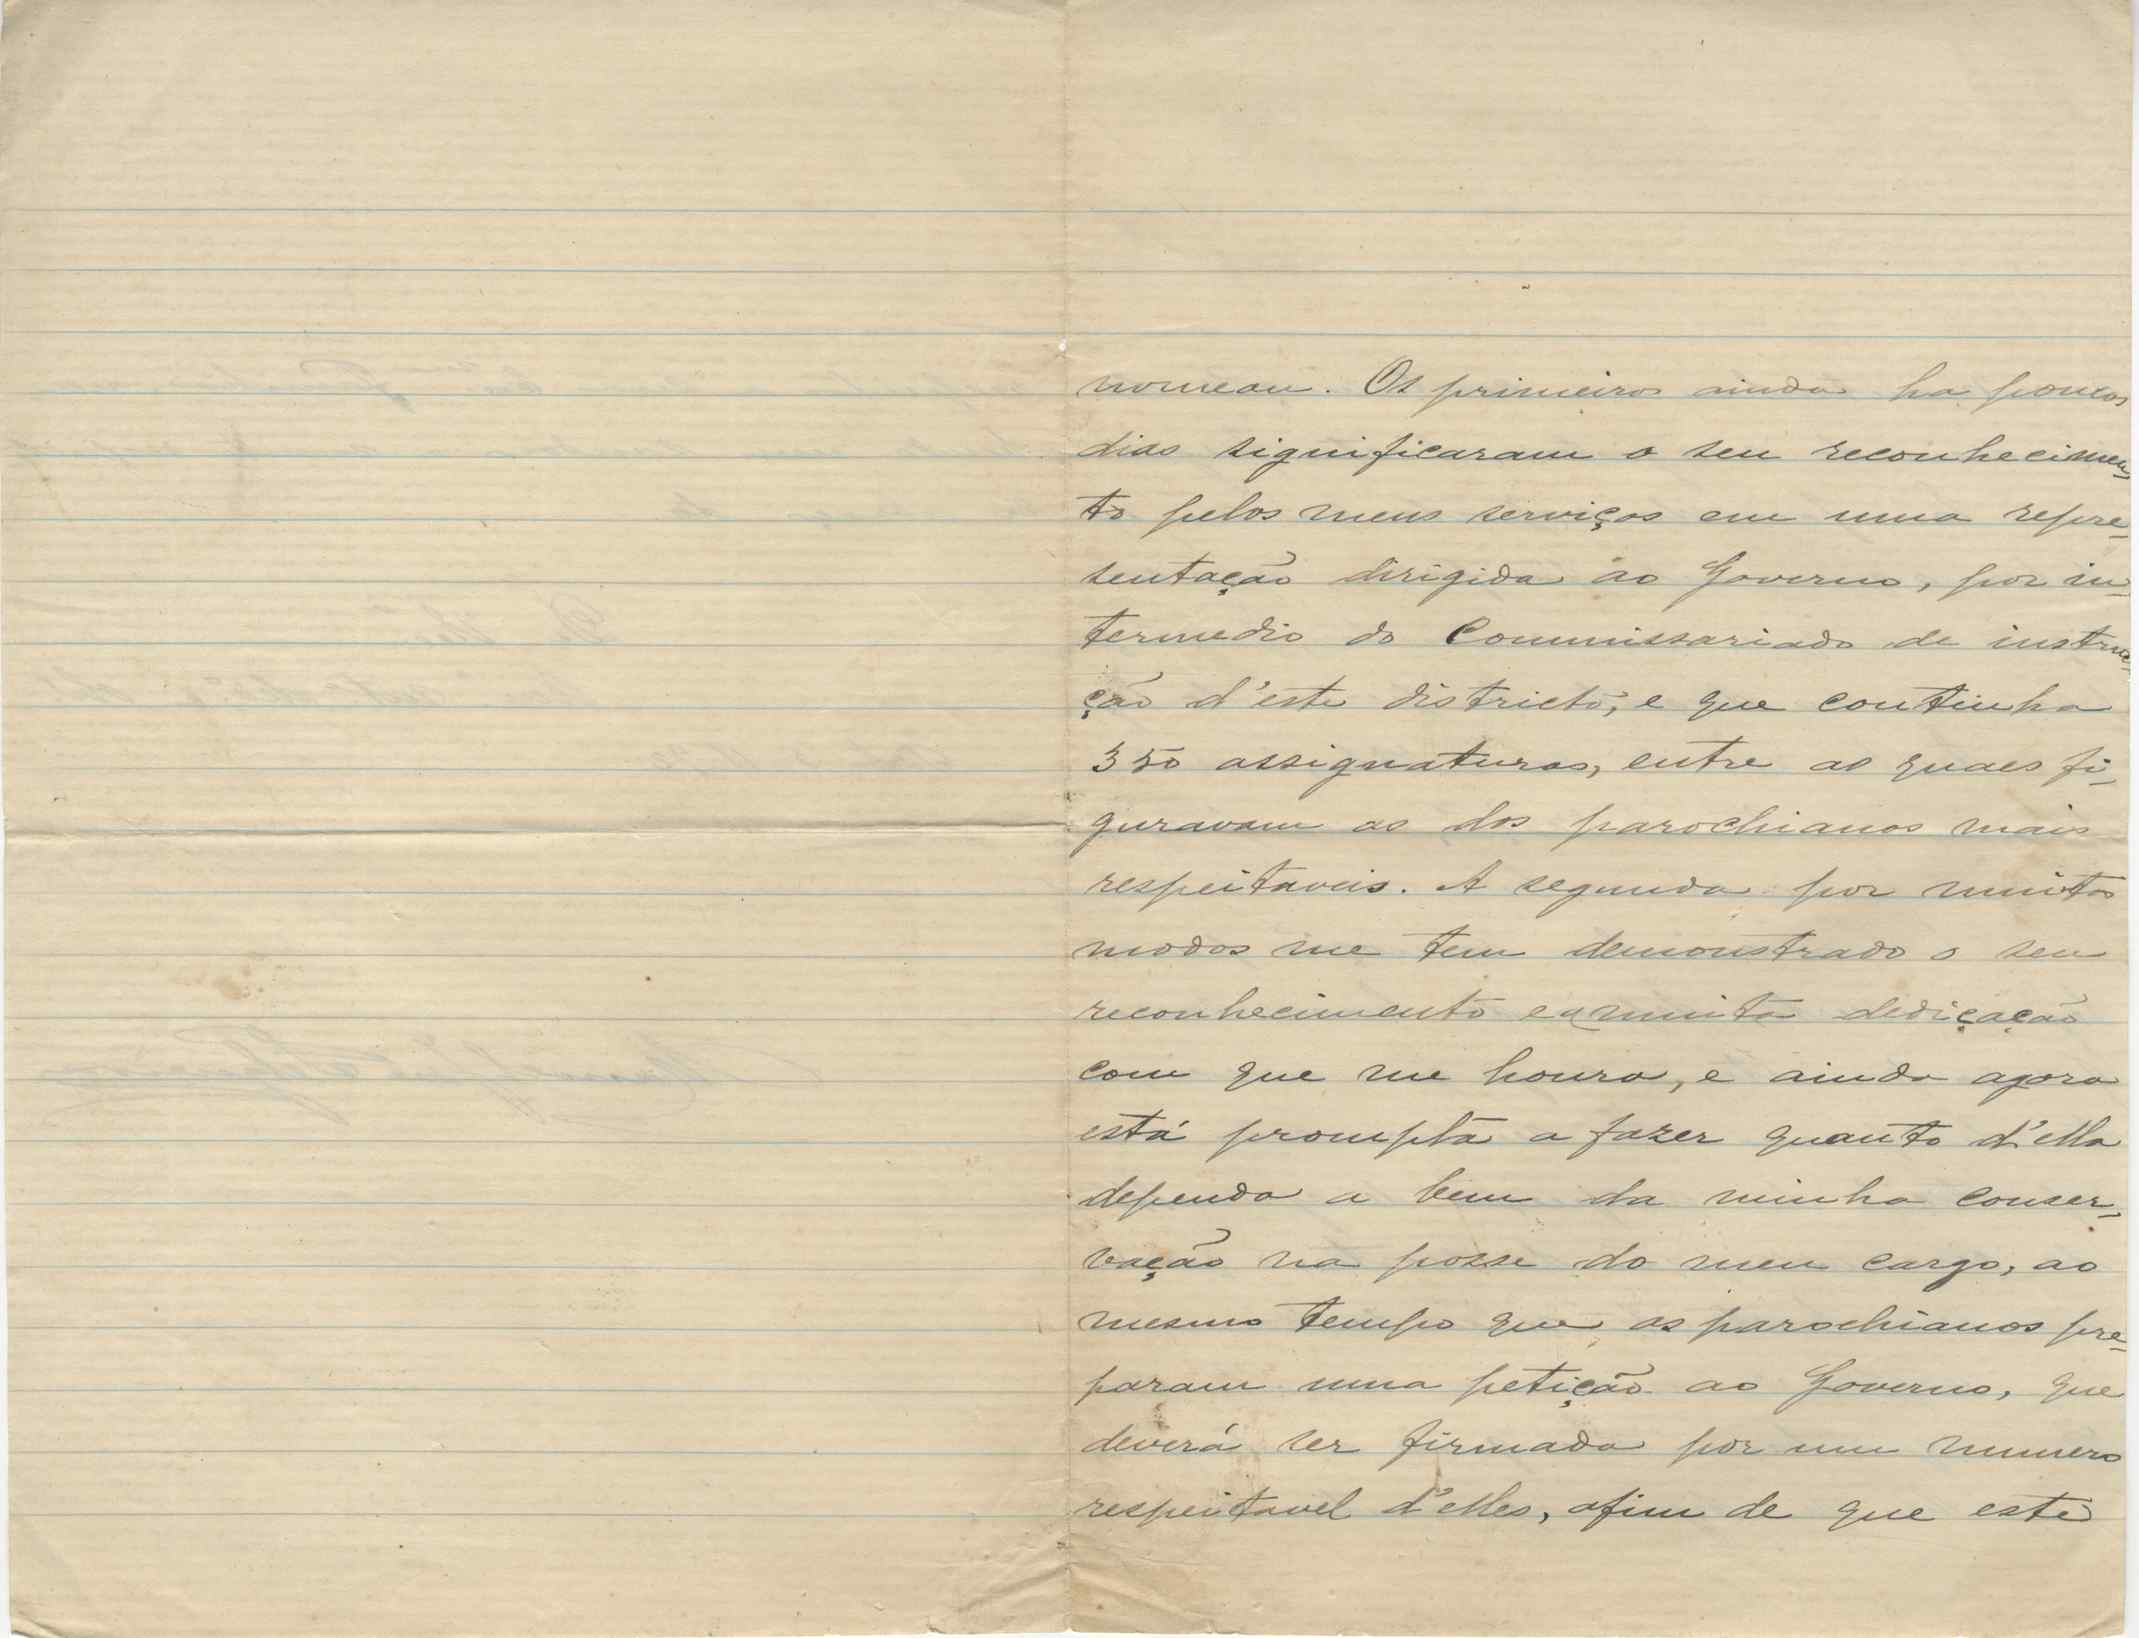 nomeou. Os primeiros ainda ha poucos
dias significaram o seu reconhecimen-
to pelos meus serviços em uma repre-
sentação dirigida ao Governo, por in-
termedio do Commissariado de instruc-
ção d'este districto, e que continha
350 assignaturas, entre as quaes fi-
guravam as dos parochianos mais
respeitaveis. A segunda por muitos
modos me tem demonstrado o seu
reconhecimento e a muita dedicação
com que me honra, e ainda agora
está prompta a fazer quanto d'ella
dependa a bem da minha conser-
vação na posse do meu cargo, ao
mesmo tempo que os parochianos pre-
param uma petição ao Governo, que
deverá ser firmada por um numero
respeitavel d'elles, afim de que este